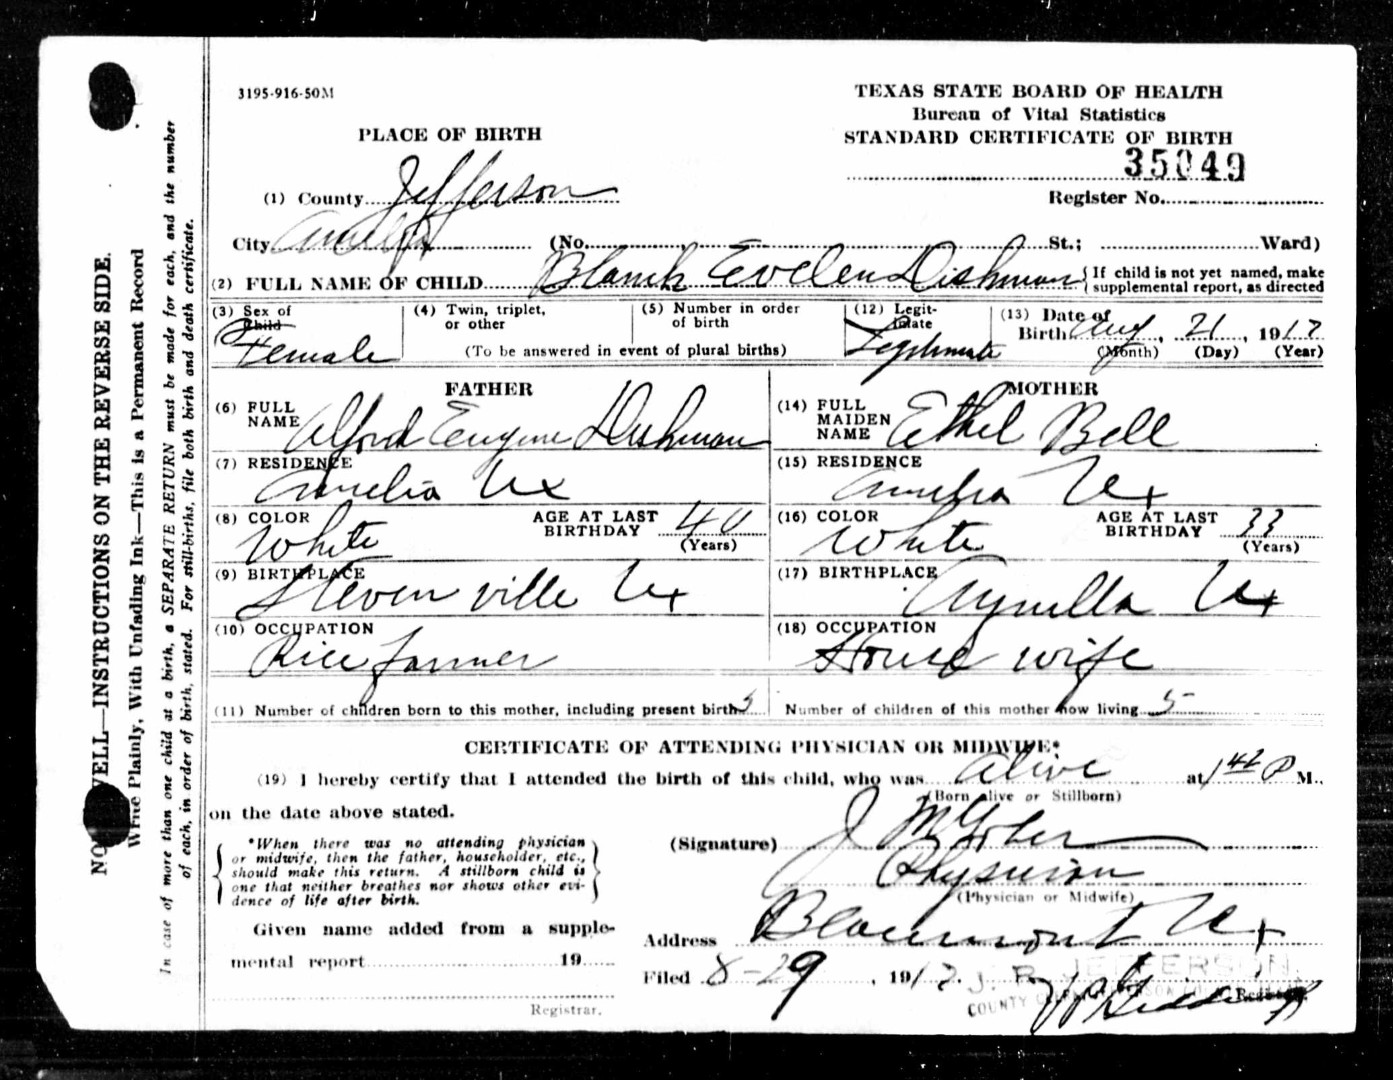 3195-916-50M
TEXAS STATE BOARD OF HEALTH
Bureau of Vital Statistics
STANDARD CERTIFICATE OF BIRTH
35049
Register No.
PLACE OF BIRTH
(1) County Jefferson
City Amelia (No. St.; Ward)
(2) FULL NAME OF CHILD Blanch Evelen Dishman { If child is not yet named, make supplemental report, as directed
(3) Sex of Child Female
(4) Twin, triplet, or other
(5) Number in order of birth
(To be answered in event of plural births)
(12) Legitimate Legitimate
(13) Date of Birth Aug, 21, 1917
(Month) (Day) (Year)
FATHER
(6) FULL NAME Alford Eugene Dishman
(7) RESIDENCE Amelia Tex
(8) COLOR White AGE AT LAST BIRTHDAY 40 (Years)
(9) BIRTHPLACE Steven ville Tex
(10) OCCUPATION Rice farmer
MOTHER
(14) FULL MAIDEN NAME Ethel Bell
(15) RESIDENCE Amelia Tex
(16) COLOR White AGE AT LAST BIRTHDAY 33 (Years)
(17) BIRTHPLACE Tex
(18) OCCUPATION House wife
(11) Number of children born to this mother, including present birth 5 Number of children of this mother now living 5
CERTIFICATE OF ATTENDING PHYSICIAN OR MIDWIFE*
(19) I hereby certify that I attended the birth of this child, who was alive at 1 P M.,
(Born alive or Stillborn)
on the date above stated.
*When there was no attending physician
or midwife, then the father, householder, etc.,
should make this return. A stillborn child is
one that neither breathes nor shows other evi-
dence of life after birth.
(Signature) J
Physician
(Physician or Midwife)
Given name added from a supple-
mental report 19
Registrar.
Address Beaumont Tex
Filed 8-29, 1917.
J. R. JEFFERSON,
COUNTY
NO WELL—INSTRUCTIONS ON THE REVERSE SIDE.
Write Plainly, With Unfading Ink—This is a Permanent Record
In case of more than one child at a birth, a SEPARATE RETURN must be made for each, and the number
of each, in order of birth, stated. For still-births, file both birth and death certificate.